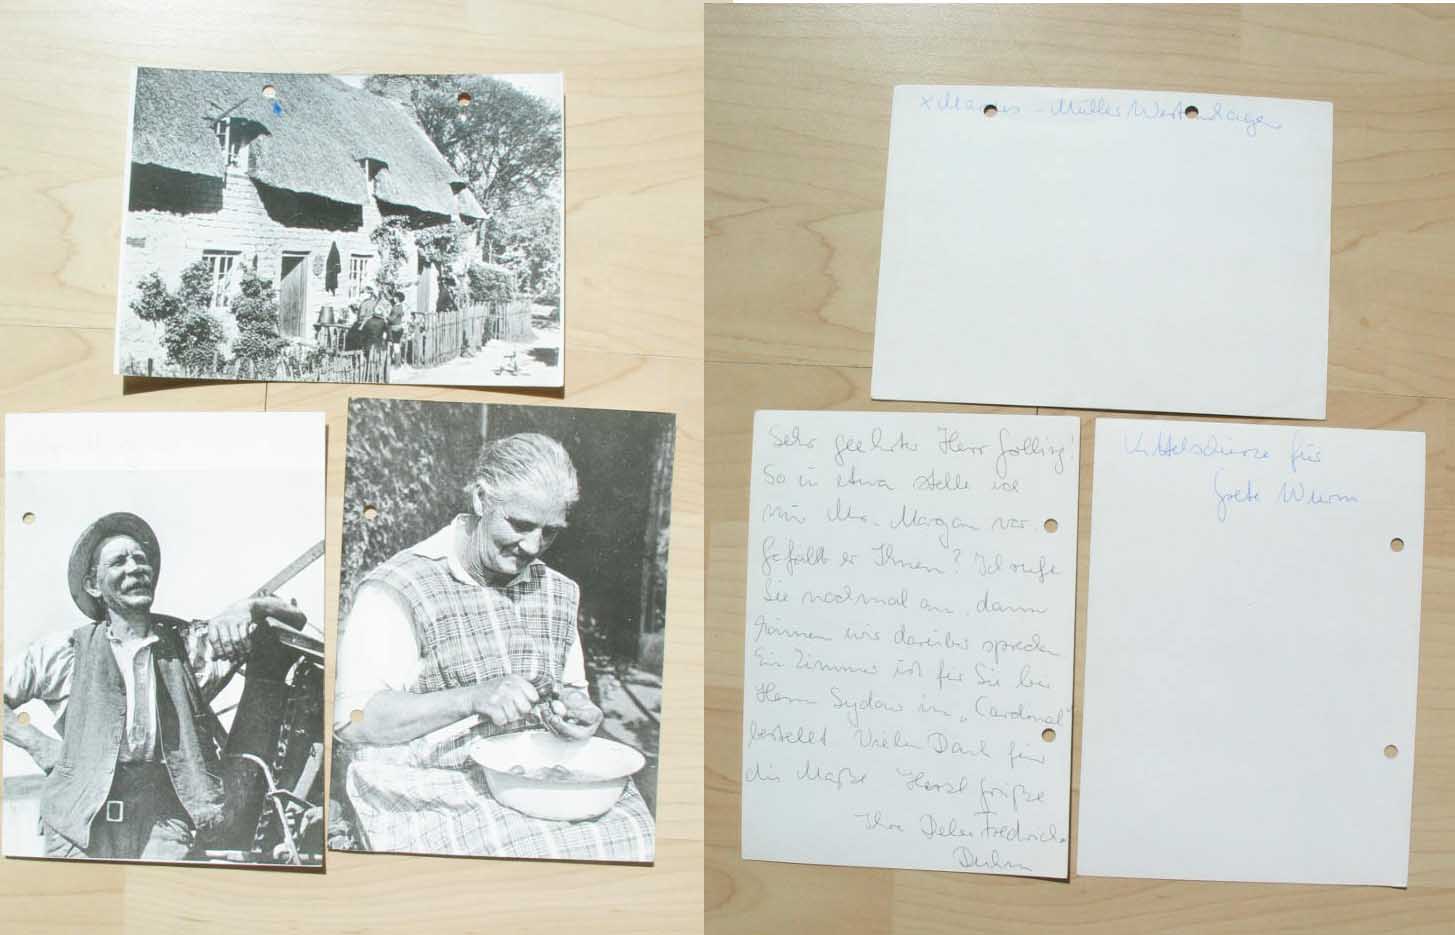 x Marius - Müller Westernhagen
Sehr geehrter Herr Golling!
So in etwa stelle ich
mir Mr. Morgan vor.
Gefällt er Ihnen? Ich rufe
Sie nochmal an, dann
können wir darüber sprechen
Ein Zimmer ist für Sie bei
Herrn Sydow im „Cardinal“
bestellt Vielen Dank für
die Maße Herzl Grüße
Ihre
Kittelschürze für
Grete Wurm